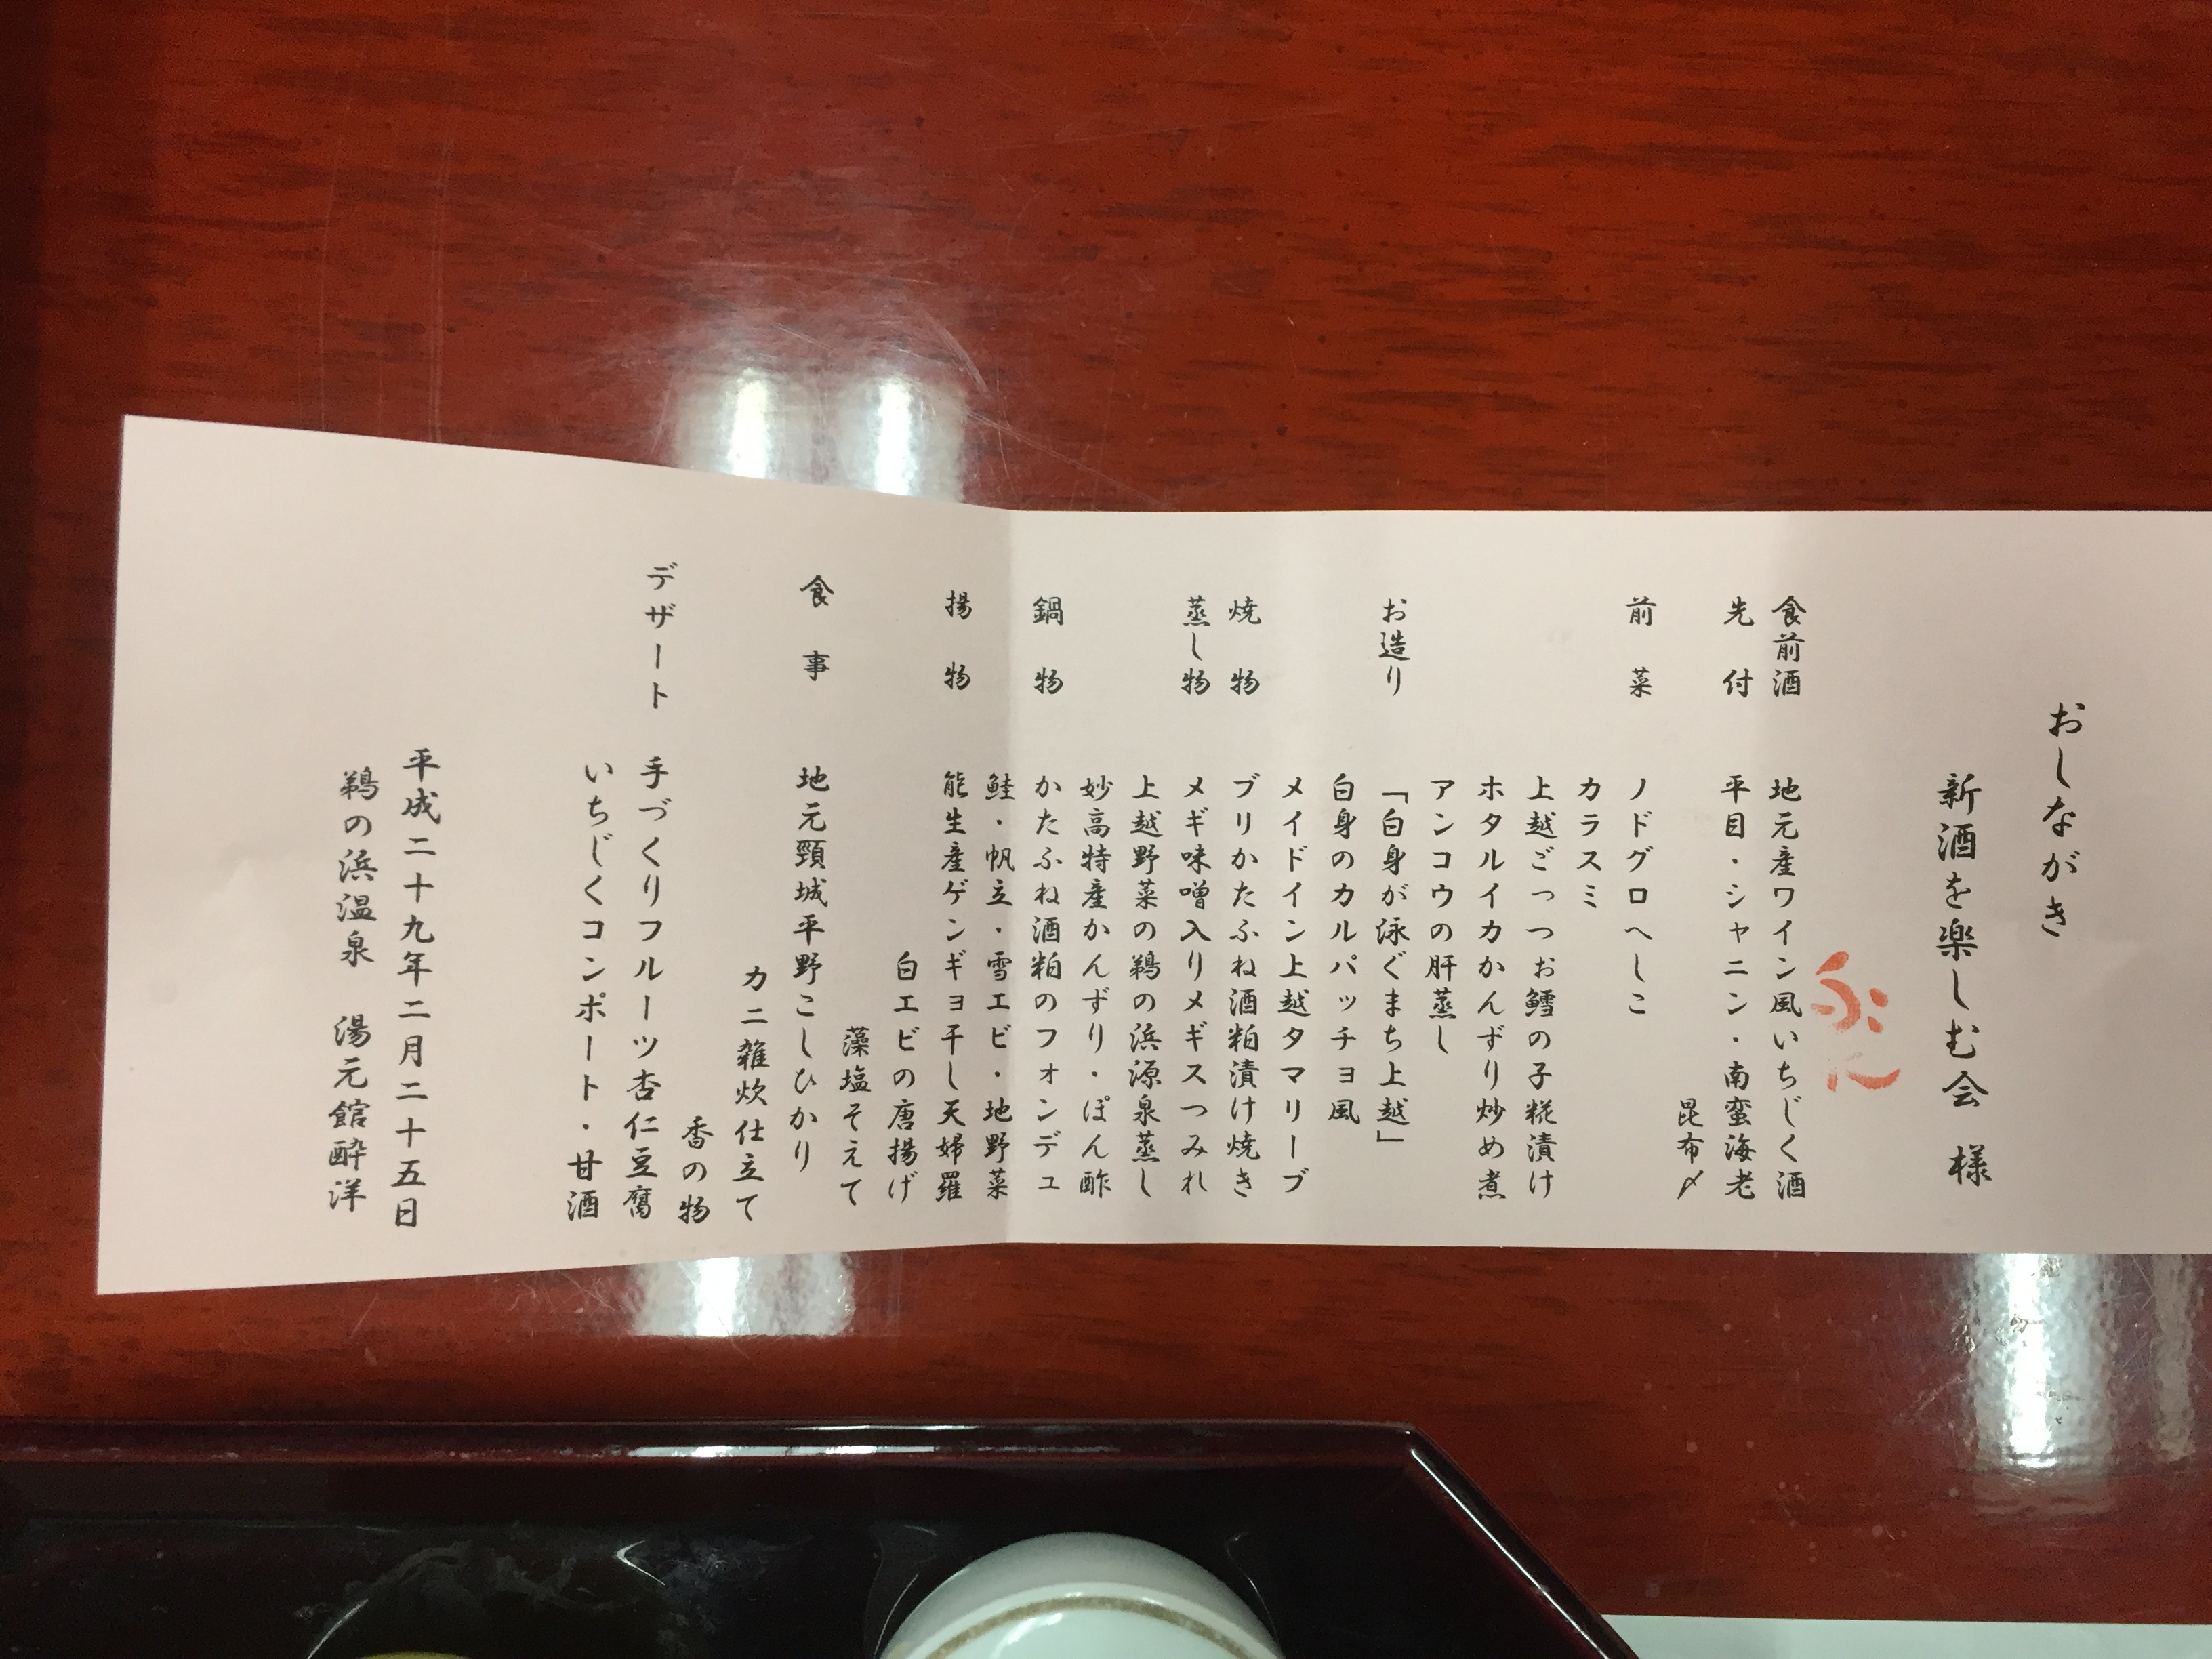 おしながき
新酒を楽しむ会 様
食前酒 地元産ワイン風いちじく酒
先付 平目・シャニン・南蛮海老
昆布〆
前菜 ノドグロへしこ
カラスミ
上越ごっつぉ鱈の子糀漬け
ホタルイカかんずり炒め煮
アンコウの肝蒸し
お造り 「白身が泳ぐまち上越」
白身のカルパッチョ風
メイドイン上越タマリーブ
焼物 ブリかたふね酒粕漬け焼き
蒸し物 メギ味噌入りメギスつみれ
上越野菜の鵜の浜源泉蒸し
妙高特産かんずり・ぽん酢
鍋物 かたふね酒粕のフォンデュ
鮭・帆立・雪エビ・地野菜
揚物 能生産ゲンギョ干し天婦羅
白エビの唐揚げ
藻塩そえて
食事 地元頸城平野こしひかり
カニ雑炊仕立て
香の物
デザート 手づくりフルーツ杏仁豆腐
いちじくコンポート・甘酒
平成二十九年二月二十五日
鵜の浜温泉 湯元館酔洋